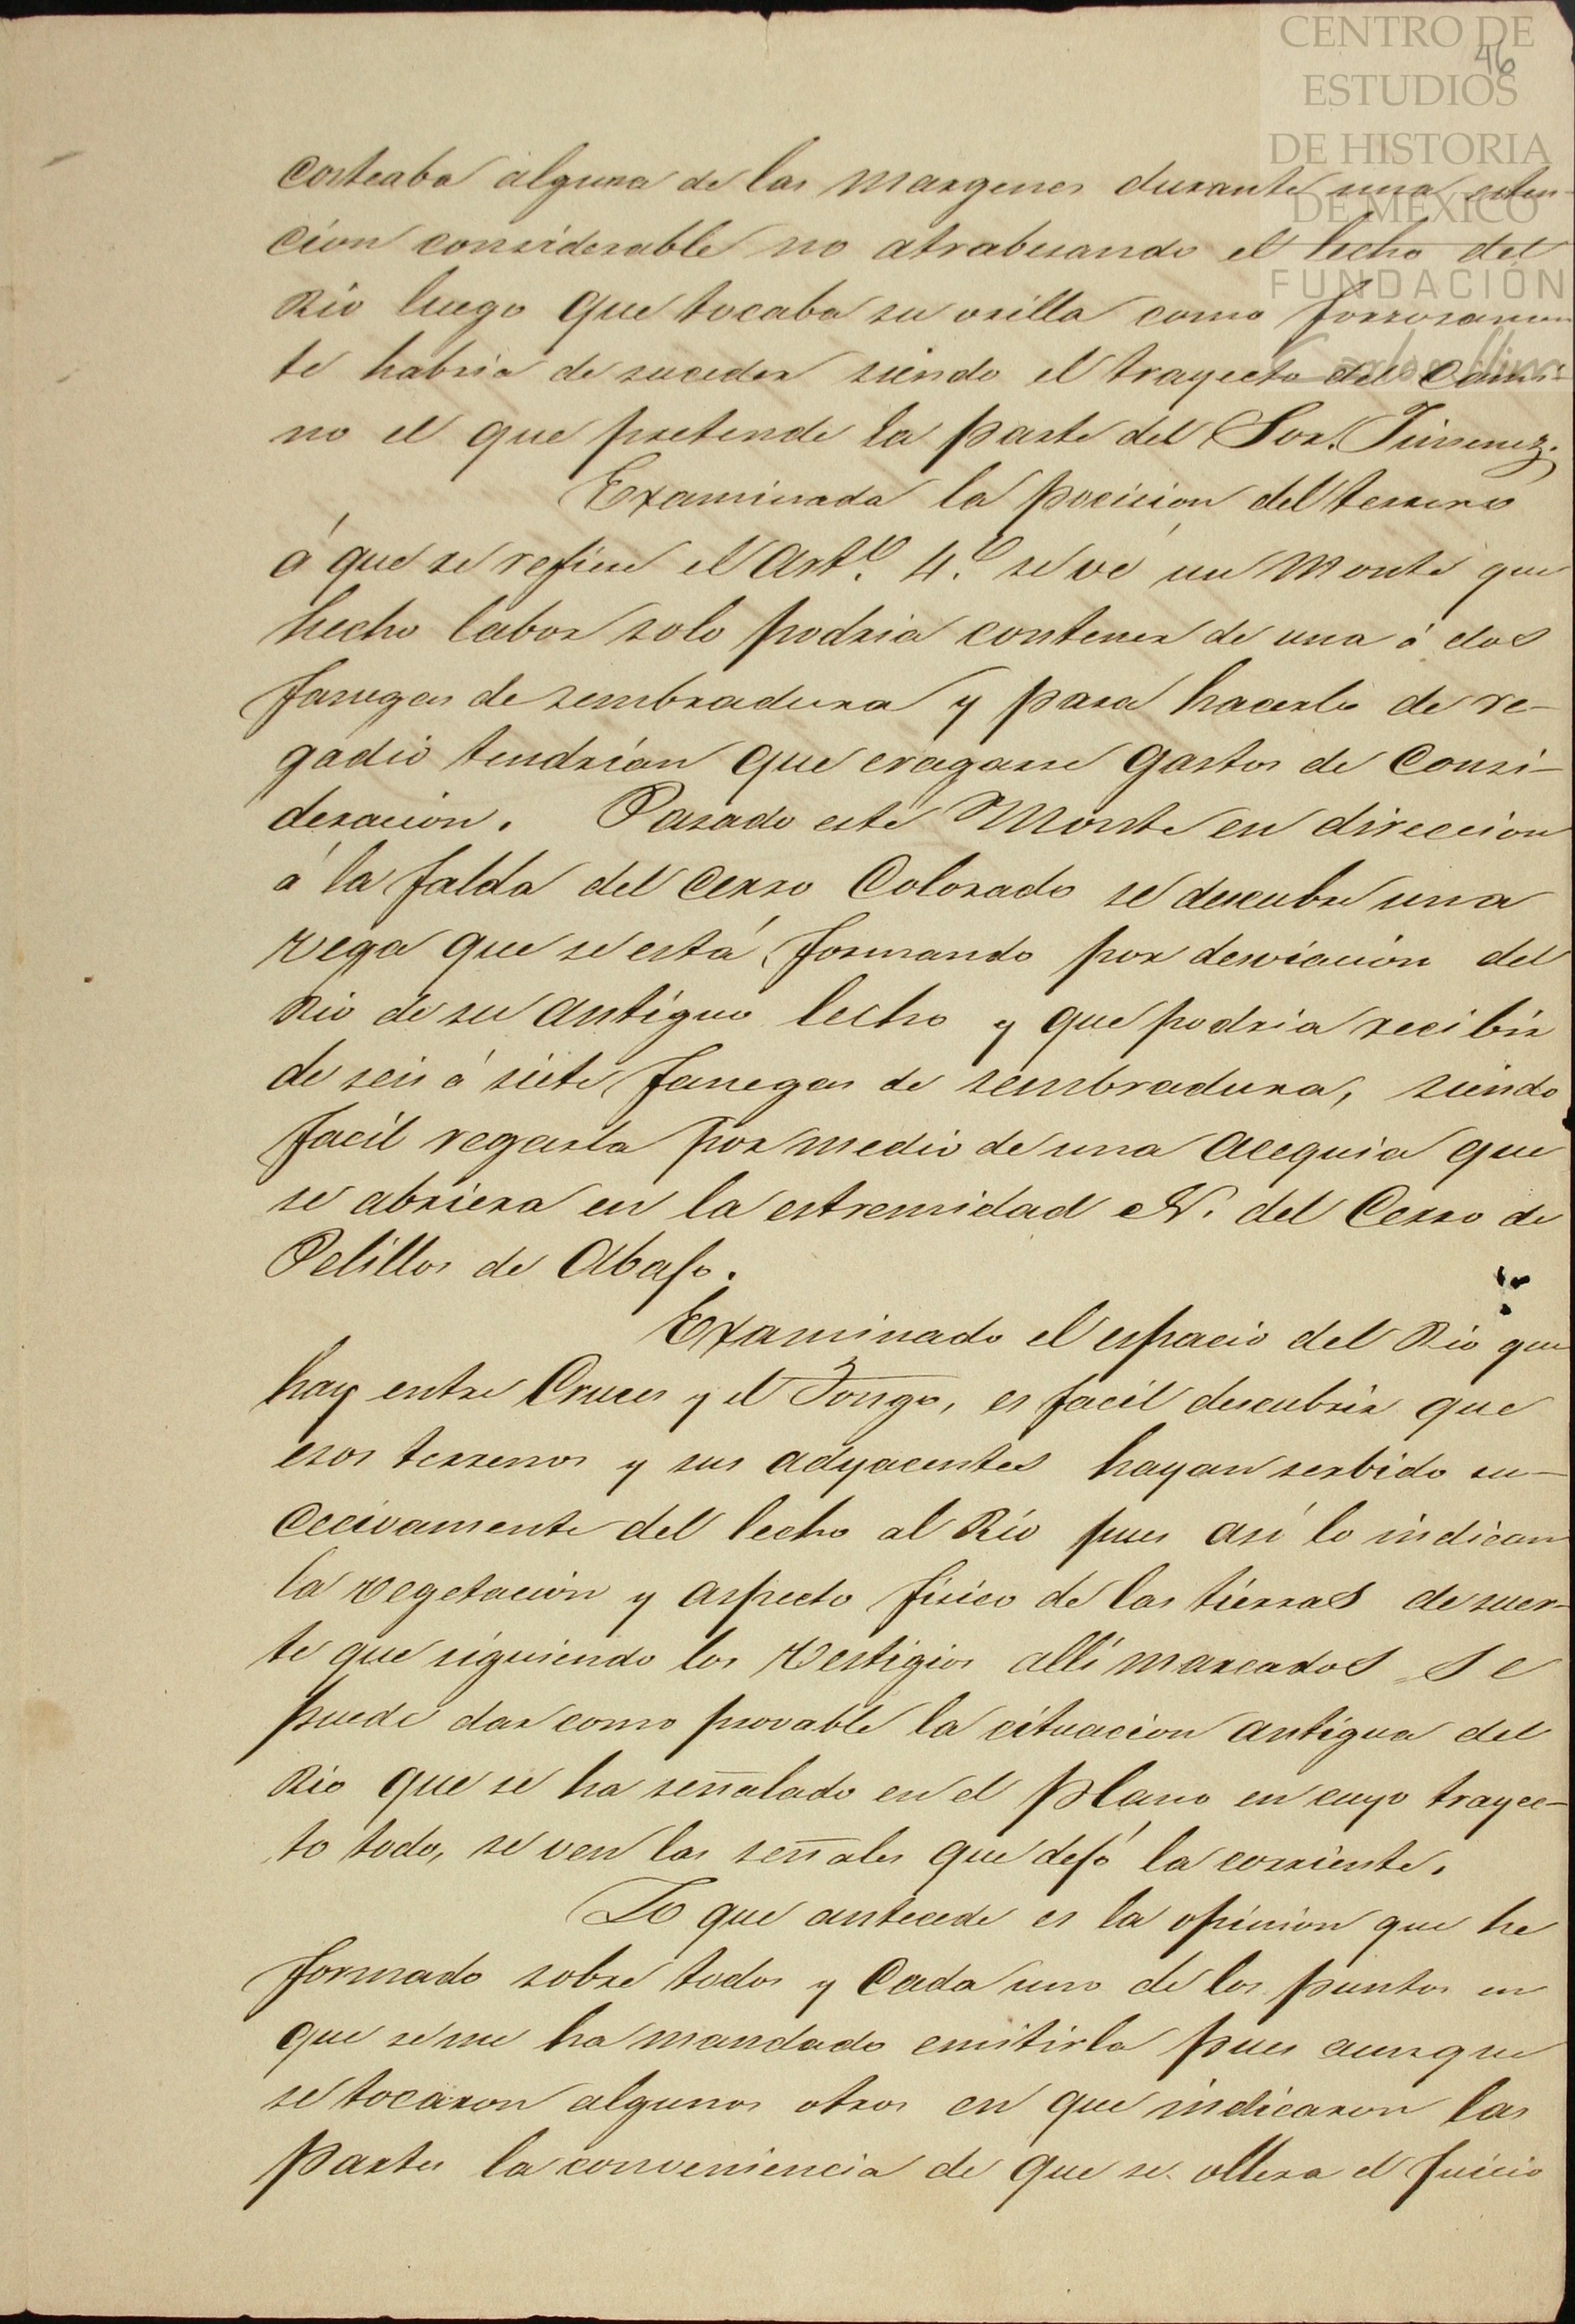 CENTRO DE
46
ESTUDIOS
DE HISTORIA
DE MÉXICO
FUNDACIÓN
Carlos Slim
costeaba alguna de las margenes durante una esten-
cion considerable no atrabesando el lecho del
Rio luego que tocaba su orilla como forzosamen
te habria de suceder siendo el trayecto del Cami-
no el que pretende la parte del Sor. Jimenez.
Examinada la pocicion del terreno
á que se refiere el Arto. 4.o se vé un Monte que
hecho labor solo podria contener de una á dos
fanegas de sembradura y para hacerlo de re-
gadio tendrian que erogarse gastos de Consi-
deracion. Pasado este Monte en direccion
á la falda del Cerro Colorado se descubre una
vega que se está formando por desviacion del
Rio de su antiguo lecho y que podria recibir
de seis á siete fanegas de sembradura, siendo
facil regarla por medio de una Acequia que
se abriera en la estremidad N. del Cerro de
Pelillos de Abajo.
Examinado el espacio del Rio que
hay entre Cruces y el Tongo, es facil descubrir que
esos terrenos y sus adyacentes hayan serbido su-
cecivamente del lecho al Rio pues así lo indican
la vegetacion y aspecto fisico de las tierras de suer-
te que siguiendo los Vestigios allí marcados se
puede dar como provable la cituacion antigua del
Rio que se ha señalado en el Plano en cuyo trayec-
to todo, se ven las señales que dejó la corriente.
Lo que antecede es la opinion que he
formado sobre todos y Cada uno de los puntos en
que se me ha mandado emitirla pues aunque
se tocaron algunos otros en que indicaron las
Partes la conveniencia de que se ollera el Juicio